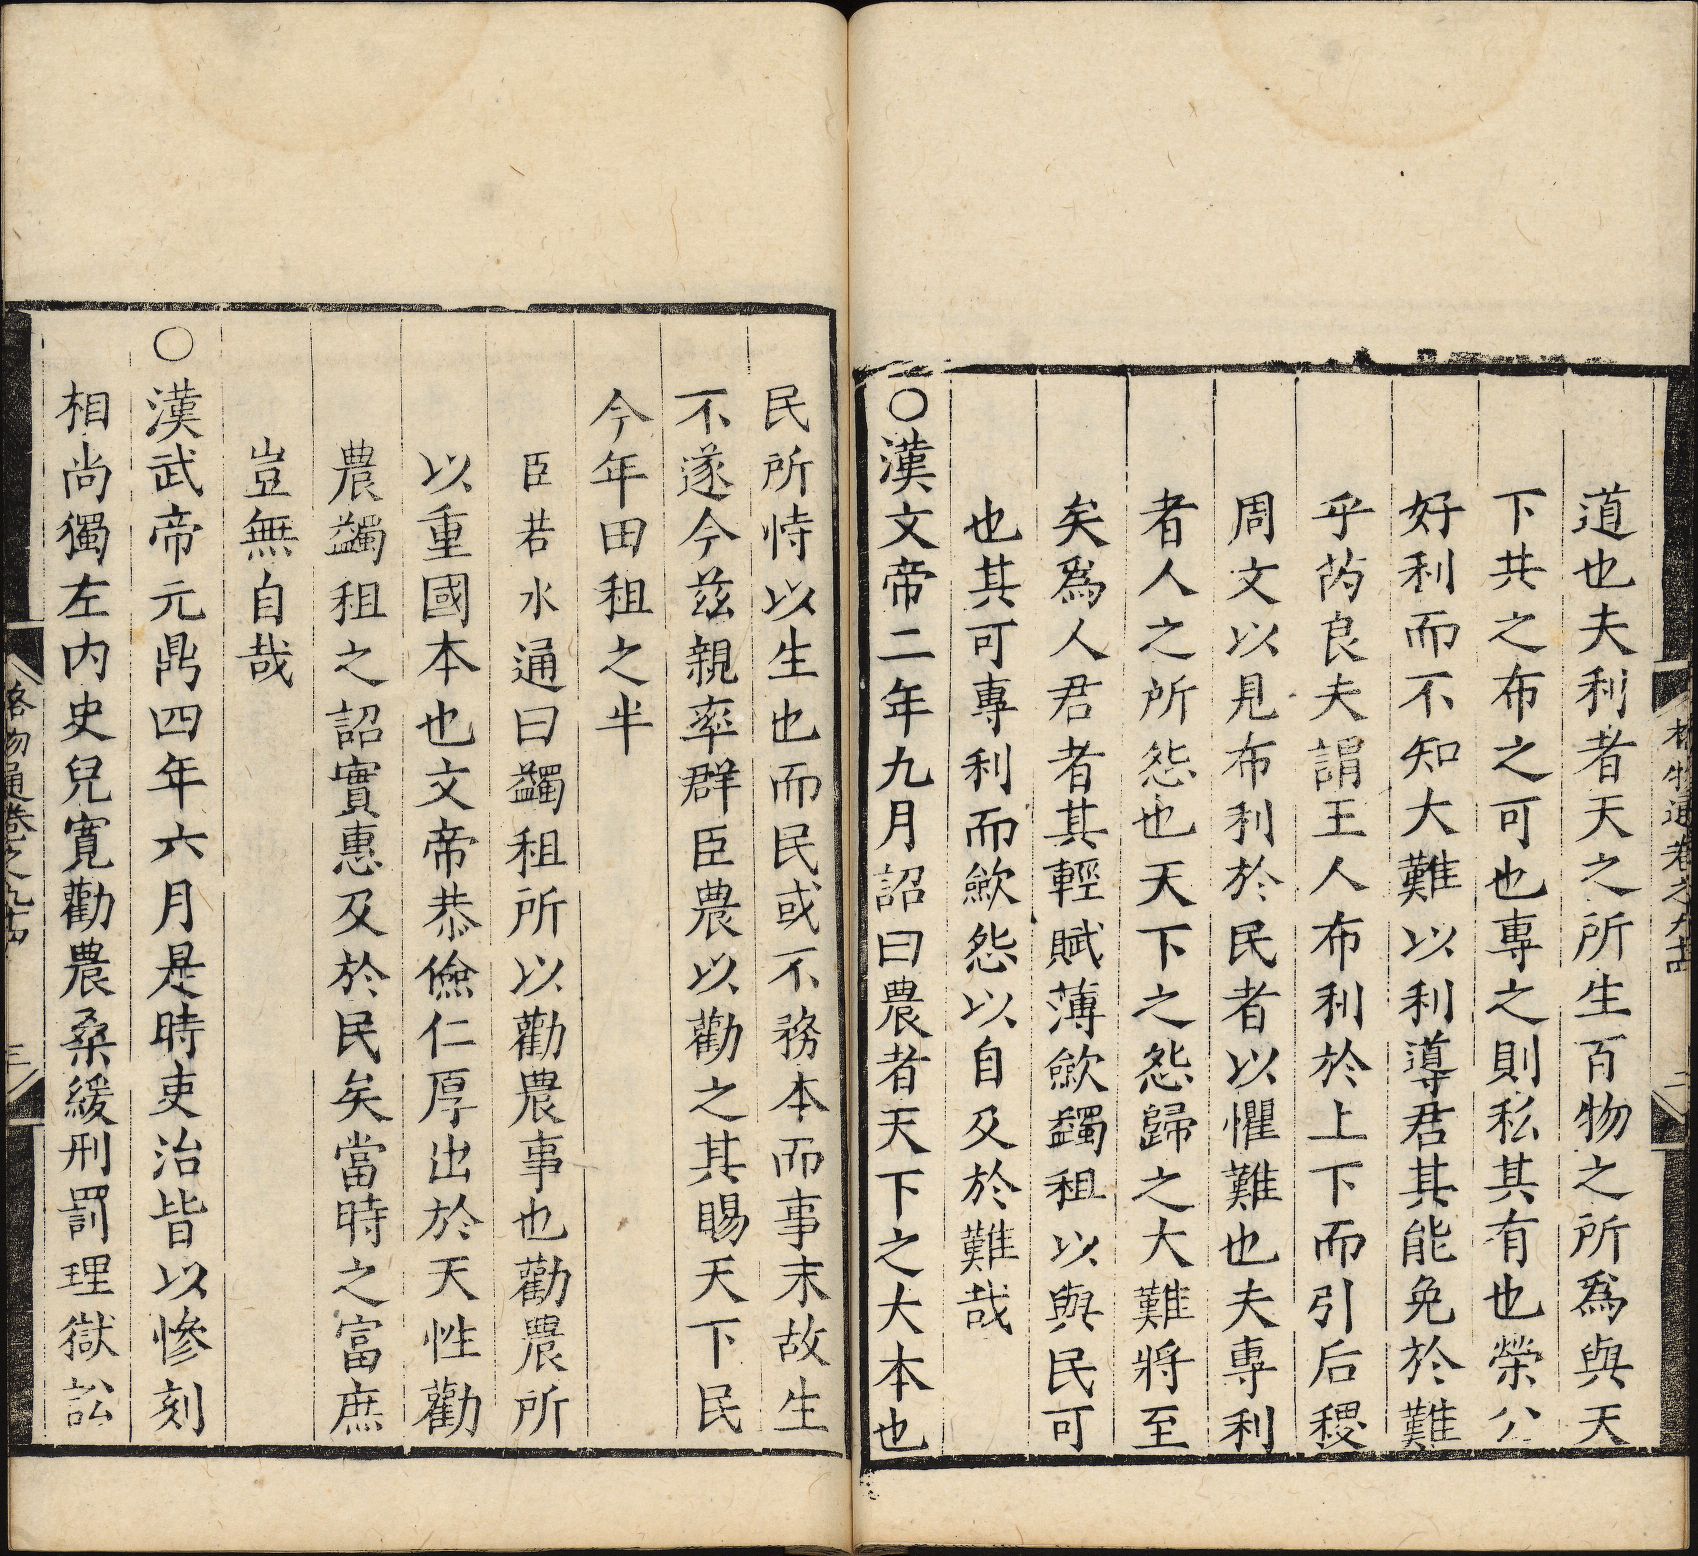 道也夫利者天之所生百物之所爲與天
下共之布之可也專之則私其有也榮公
好利而不知大難以利導君其能免於難
乎芮良夫謂王人布利於上下而引后稷
周文以見布利於民者以懼難也夫專利
者人之所怨也天下之怨歸之大難將至
矣爲人君者其輕賦薄歛蠲租以與民可
也其可專利而歛怨以自及於難哉
○漢文帝二年九月詔曰農者天下之大本也
民所恃以生也而民或不務本而事末故生
不遂今兹親率群臣農以勸之其賜天下民
今年田租之半
臣若水通曰蠲租所以勸農事也勸農所
以重國本也文帝恭儉仁厚出於天性勸
農蠲租之詔實惠及於民矣當時之富庶
豈無自哉
○漢武帝元鼎四年六月是時吏治皆以慘刻
相尚獨左内史兒寛勸農桑緩刑罰理獄訟
格物通卷之九十四
三